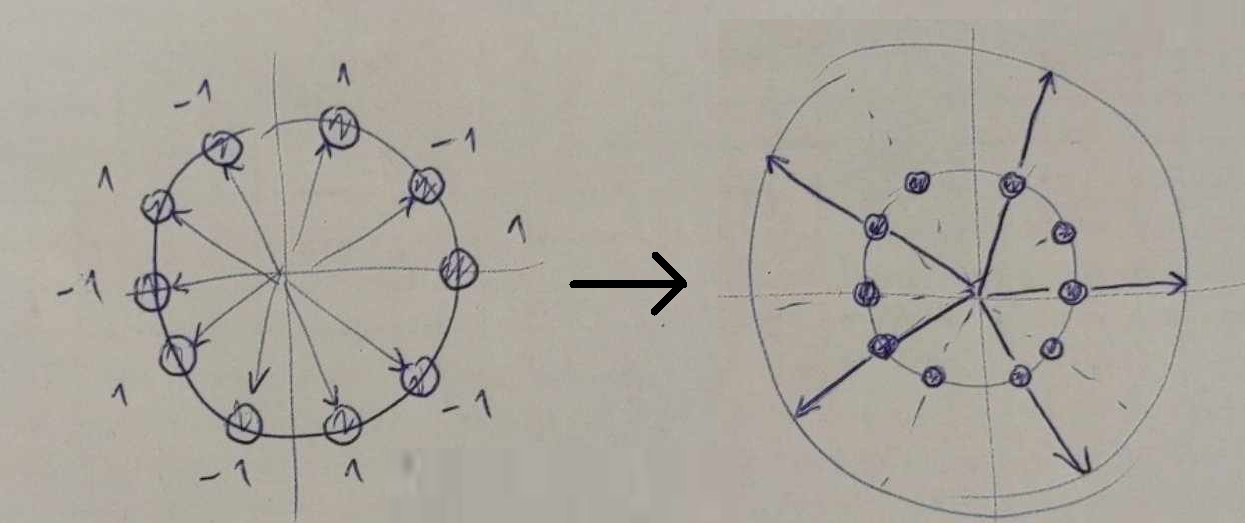 -1 1
-1
1
1
-1
1 -1
-1 1